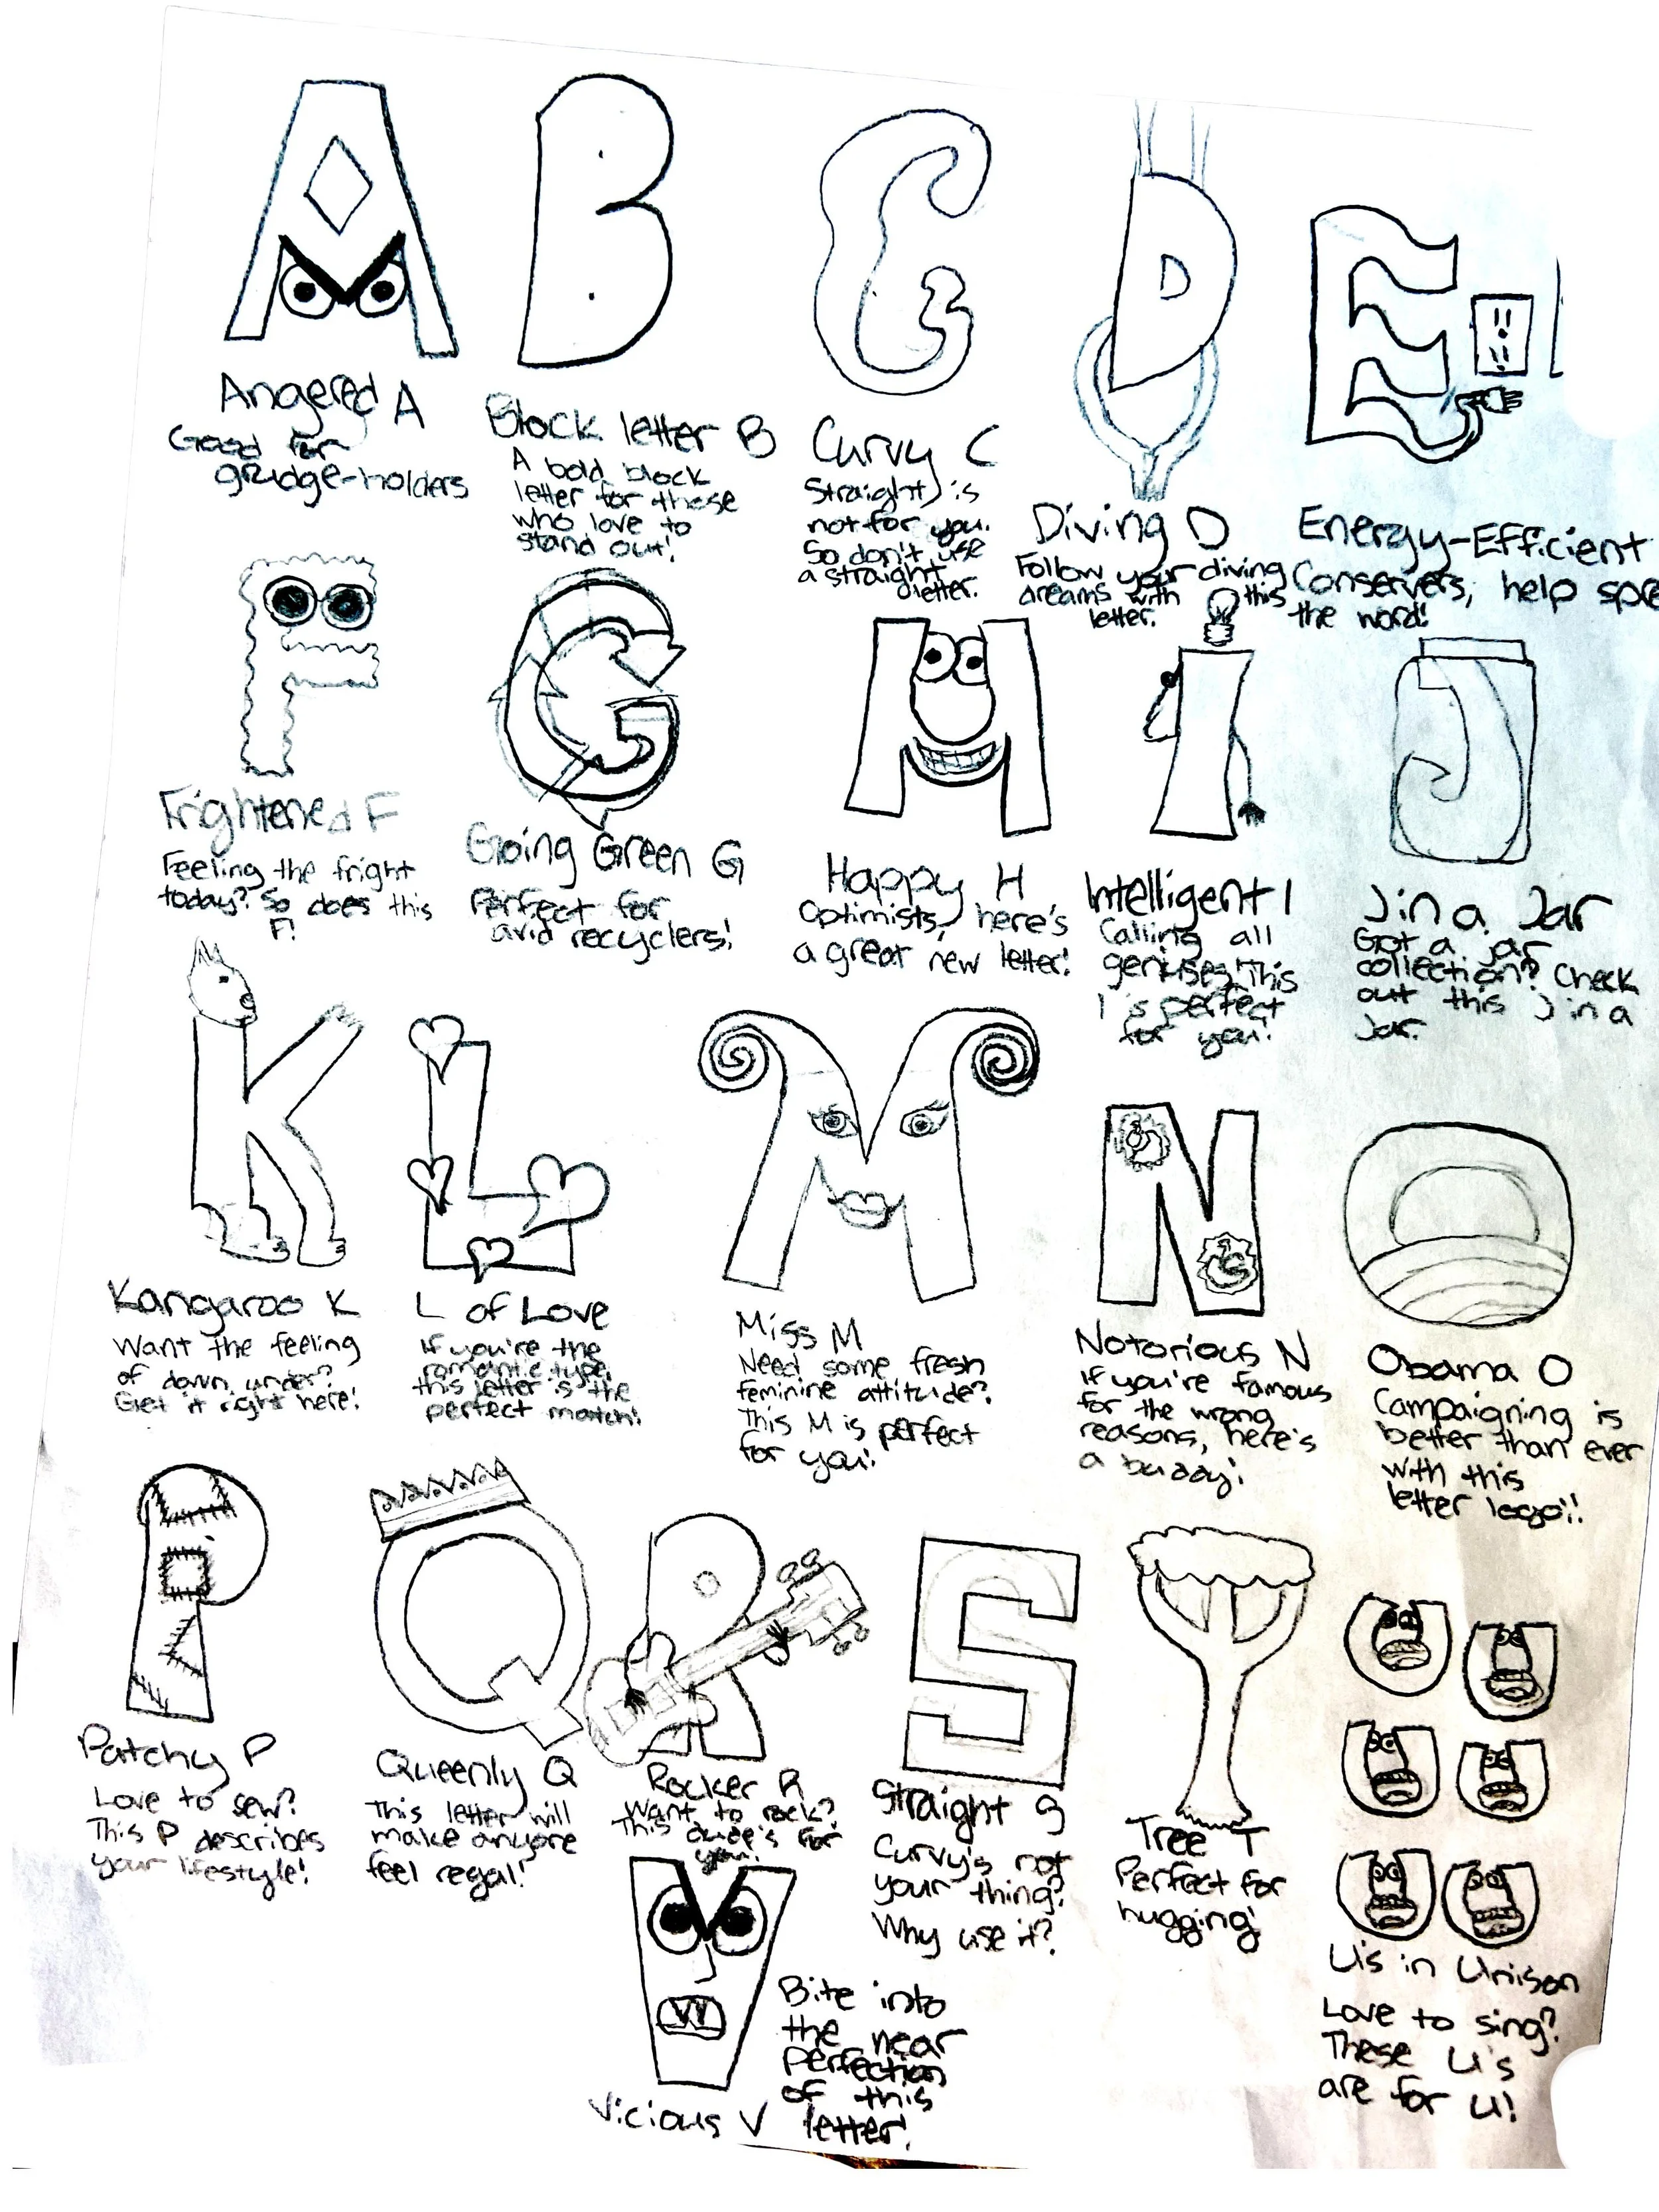 Angered A
Good for
grudge-holders
Block letter B
A bold block
letter for those
who love to
stand out!
Curvy C
Straight is
not for you.
So don't use
a straight
letter.
Diving D
Follow your diving
dreams with this
letter.
Energy-Efficient
Conservers, help spre
the word!
Frightened F
Feeling the fright
today? So does this
F!
Going Green G
Perfect for
avid recyclers!
Happy H
Optimists, here's
a great new letter!
Intelligent I
Calling all
geniuses! This
I is perfect
for you!
J in a Jar
Got a jar
collection? Check
out this J in a
Jar.
Kangaroo K
Want the feeling
of down under?
Get it right here!
L of Love
If you're the
romantic type,
this letter is the
perfect match!
Miss M
Need some fresh
feminine attitude?
This M is perfect
for you!
Notorious N
If you're famous
for the wrong
reasons, here's
a buddy!
Obama O
Campaigning is
better than ever
with this
letter logo!!
Patchy P
Love to sew?
This P describes
your lifestyle!
Queenly Q
This letter will
make anyone
feel regal!
Rocker R
Want to rock?
This dude's for
you!
Straight S
Curvy's not
your thing?
Why use it?
Tree T
Perfect for
hugging!
U's in Unison
Love to sing?
These U's
are for U!
Vicious V
Bite into
the near
perfection
of this
letter!